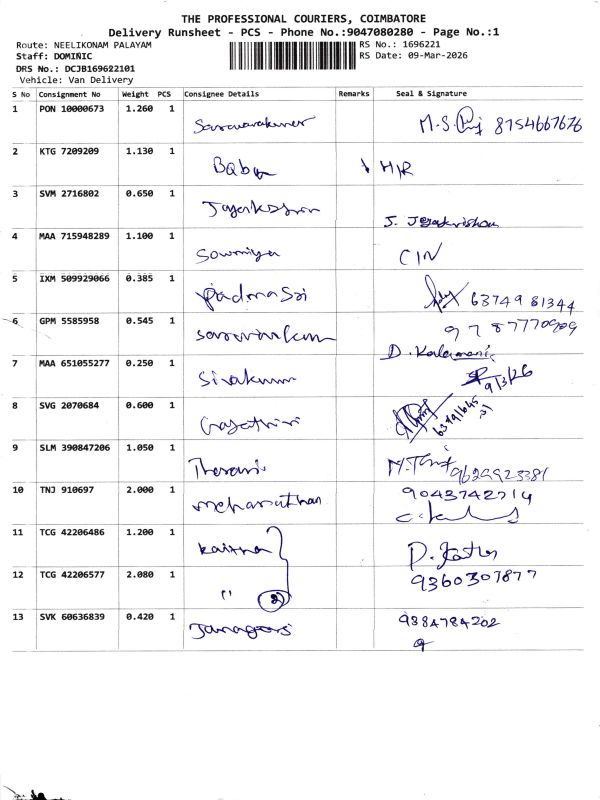 THE PROFESSIONAL COURIERS, COIMBATORE
Delivery Runsheet - PCS - Phone No.:9047080280 - Page No.:1
Route: NEELIKONAM PALAYAM
RS No.: 1696221
Staff: DOMINIC
RS Date: 09-Mar-2026
DRS No.: DCJB169622101
Vehicle: Van Delivery
S No Consignment No Weight PCS Consignee Details Remarks Seal & Signature
1 PON 10000673 1.260 1 Saravanakumar M.S. 8754667676
2 KTG 7209209 1.130 1 Babu H/R
3 SVM 2716802 0.650 1 J. Jeyakrishna
4 MAA 715948289 1.100 1 Sowmiya CIN
5 IXM 509929066 0.385 1 Padma Sri 63749 81344
6 GPM 5585958 0.545 1 97 87770909
D. Kalamani
7 MAA 651055277 0.250 1 Sivakumar 9/3/26
8 SVG 2070684 0.600 1 Gayathiri
9 SLM 390847206 1.050 1 Tharani 9629923381
10 TNJ 910697 2.000 1 9043742714
11 TCG 42206486 1.200 1
12 TCG 42206577 2.080 1 " 2 9360307877
13 SVK 60636839 0.420 1 9384784202